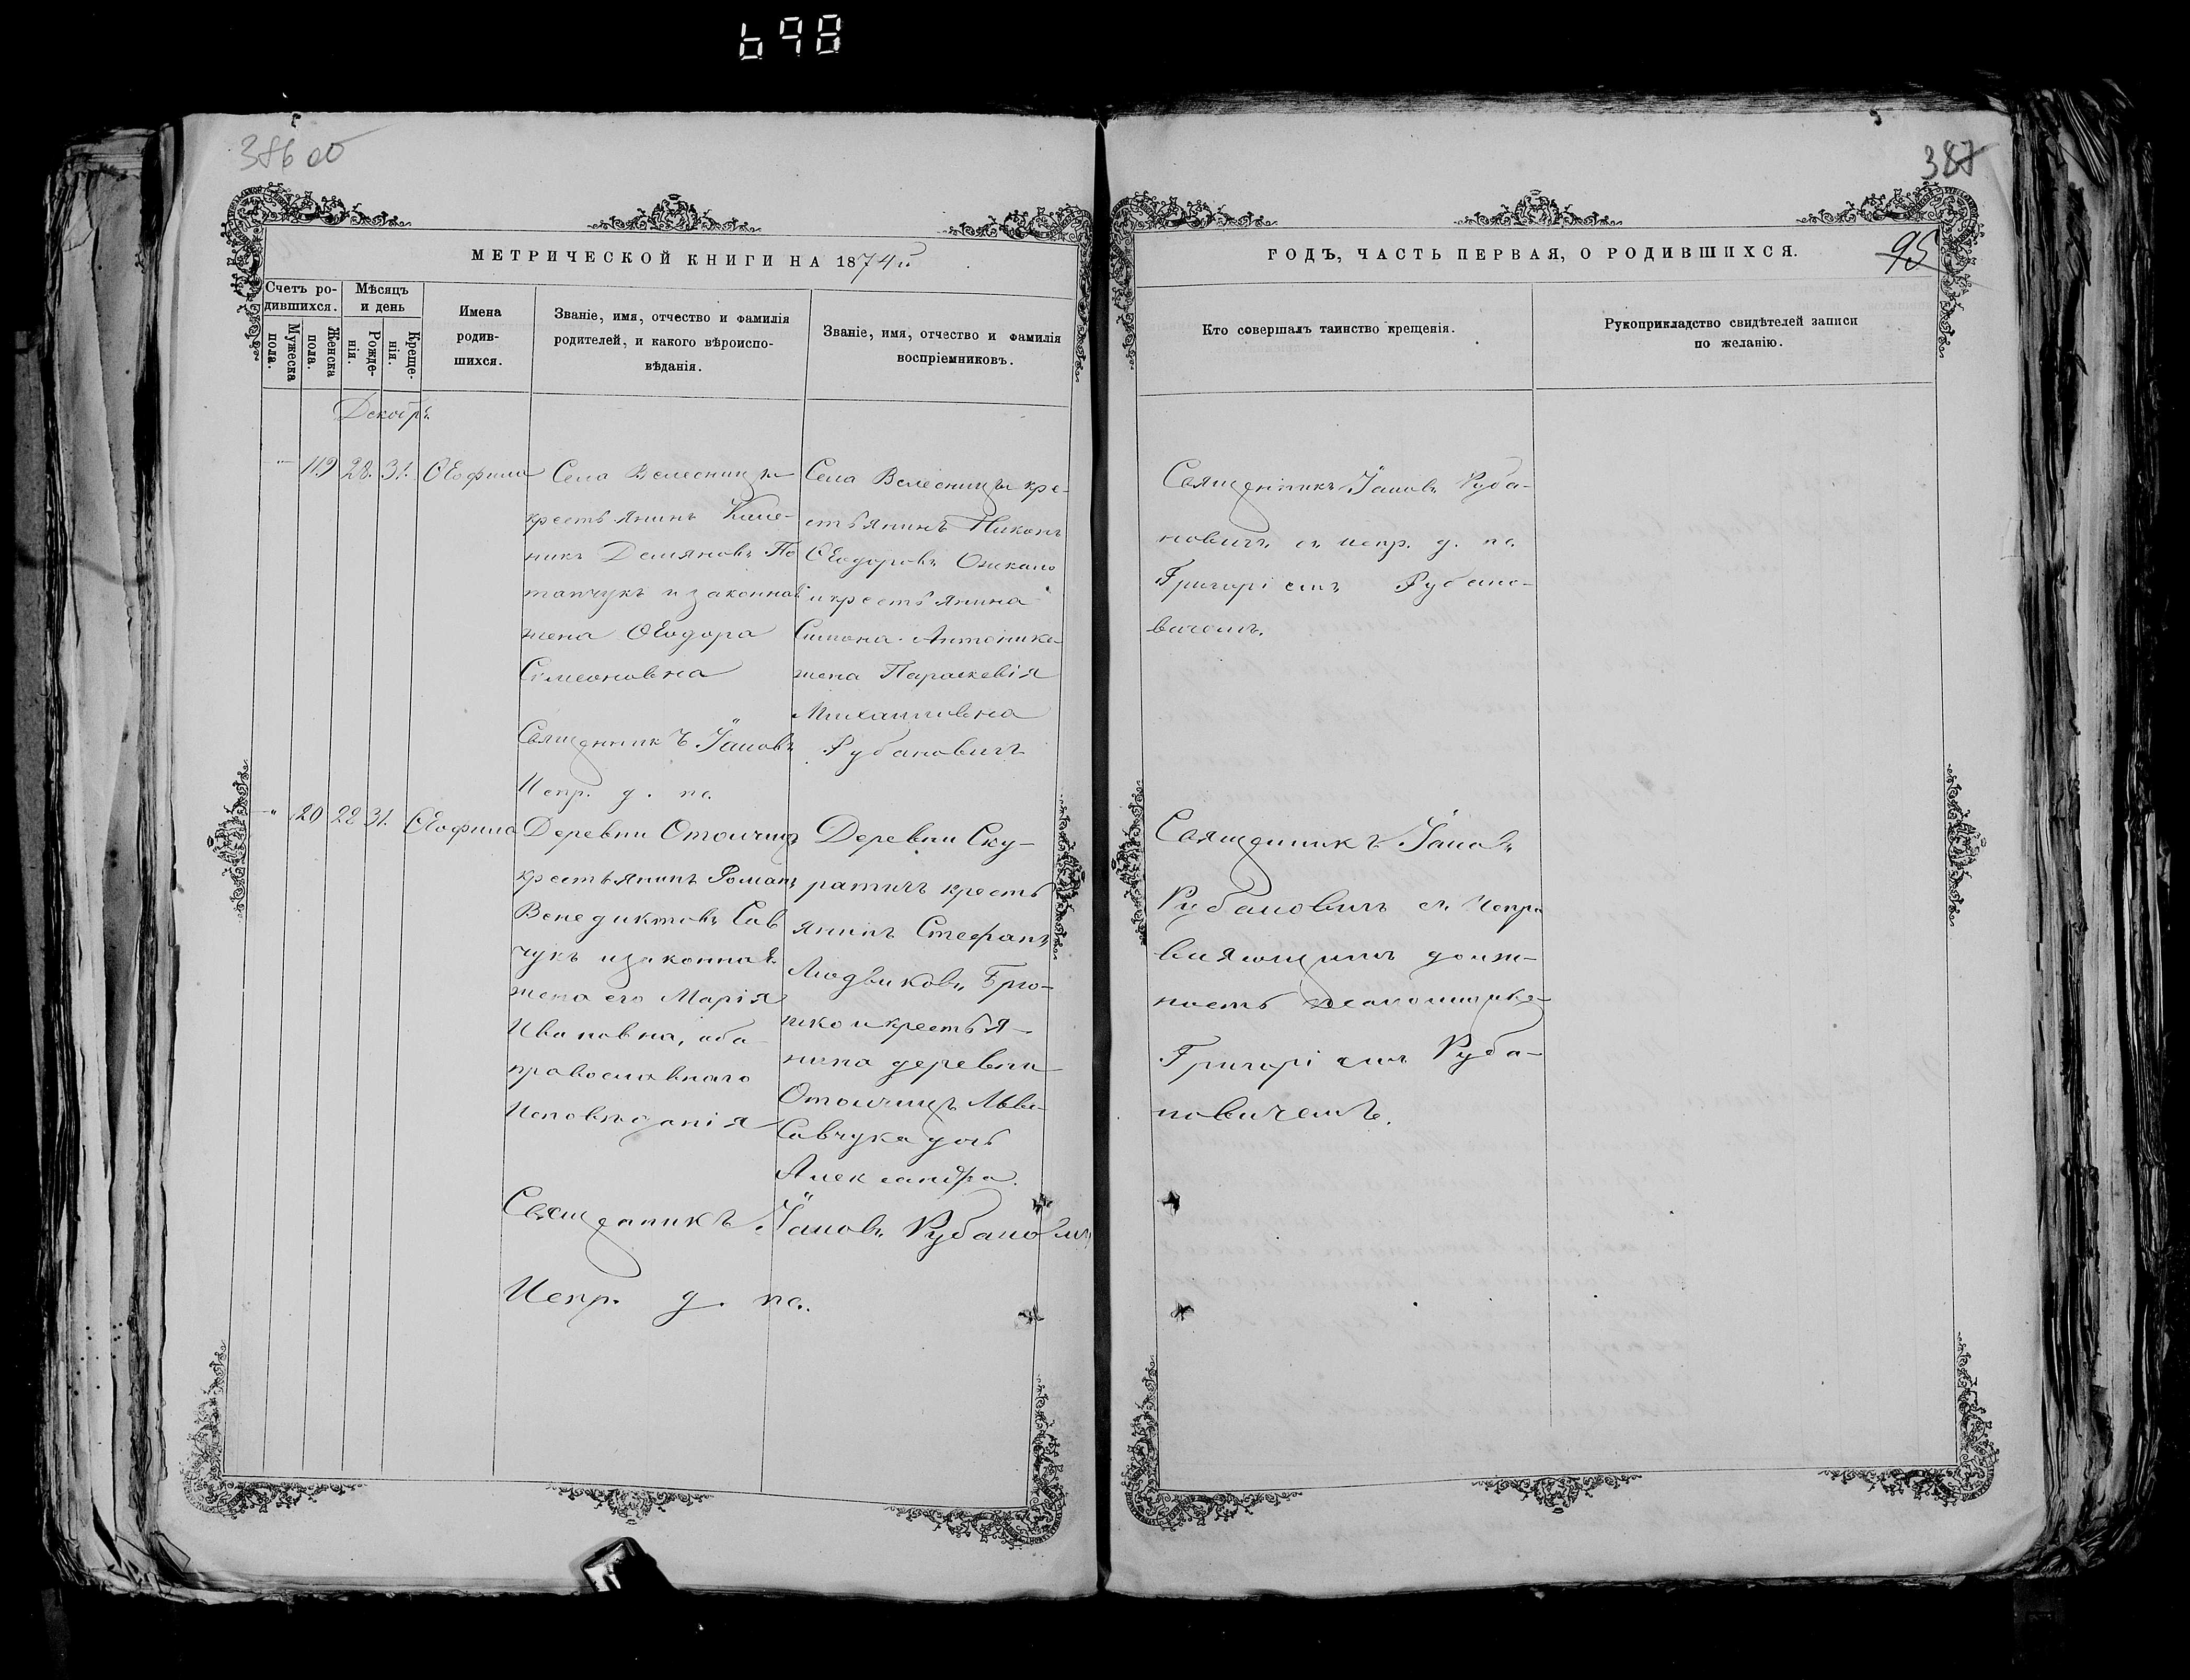 698
386 об
387
МЕТРИЧЕСКОЙ КНИГИ НА 1874й
ГОДЪ, ЧАСТЬ ПЕРВАЯ, О РОДИВШИХСЯ.
95
Счетъ ро-
дившихся.
Мужеска
пола.
Женска
пола.
Мѣсяцъ
и день
Рожде-
нія.
Креще-
нія.
Имена
родив-
шихся.
Званіе, имя, отчество и фамилія
родителей, и какого вѣроиспо-
вѣданія.
Званіе, имя, отчество и фамилія
воспріемниковъ.
Кто совершалъ таинство крещенія.
Рукоприкладство свидѣтелей записи
по желанію.
Декабрь
" 119 28. 31. Ѳеофила
Села Велесницы
крестьянинъ Климе-
никъ Демяновъ По
тапчукъ и законная
жена Ѳеодора
Симеоновна
Села Велесницы кре-
стьянинъ Никонъ
Ѳеодоровъ
и крестьянина
Симона Антоника
жена Параскевія
Михаиловна
Священникъ Іаковъ Рубановичъ
Испр. д. пс.
Священникъ Іаковъ Руба-
новичъ съ испр. д. пс.
Григоріемъ Рубано-
вичемъ.
" 120 28 31. Ѳеофила
Деревни Отолчицъ
крестьянинъ Романъ
Венедиктовъ Сав
чукъ и законная
жена его Марія
Ивановна, оба
православнаго
Исповѣданія
Деревни Ску-
ратичъ кресть
янинъ Стефанъ
Людвиковъ Гры-
нко и крестья-
нина деревни
Отолчицъ Льва
Савчука дочь
Александра.
Священникъ Іаковъ Рубановичъ
Испр. д. пс.
Священникъ Іаковъ
Рубановичъ съ Испра
вляющимъ долж-
ность псаломщика
Григоріемъ Руба-
новичемъ.